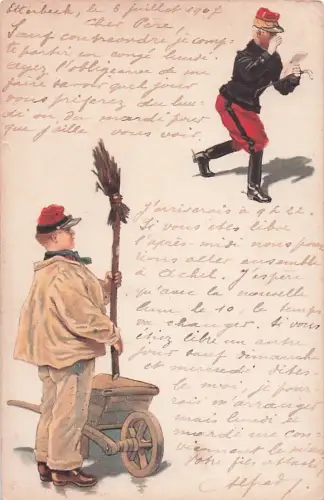 Etterbeek, le 6 juillet 1907
Cher Père,
Sauf contreordre je comp-
te partir en congé lundi.
Ayez l'obligeance de me
faire savoir quel jour
vous préférez du lun-
di ou du mardi pour
que j'aille vous voir.
J'arriverais à 9h 22.
Si vous êtes libre
l'après-midi nous pour-
rions aller ensemble
à Achel. J'espère
qu'avec la nouvelle
lune le 10, le temps
va changer. Si vous
étiez libre un autre
jour sauf dimanche
et mercredi, dites-
le moi, je pour-
rais m'arranger
mais lundi et
mardi me con-
viennent le mieux
Votre fils attaché,
Alfred